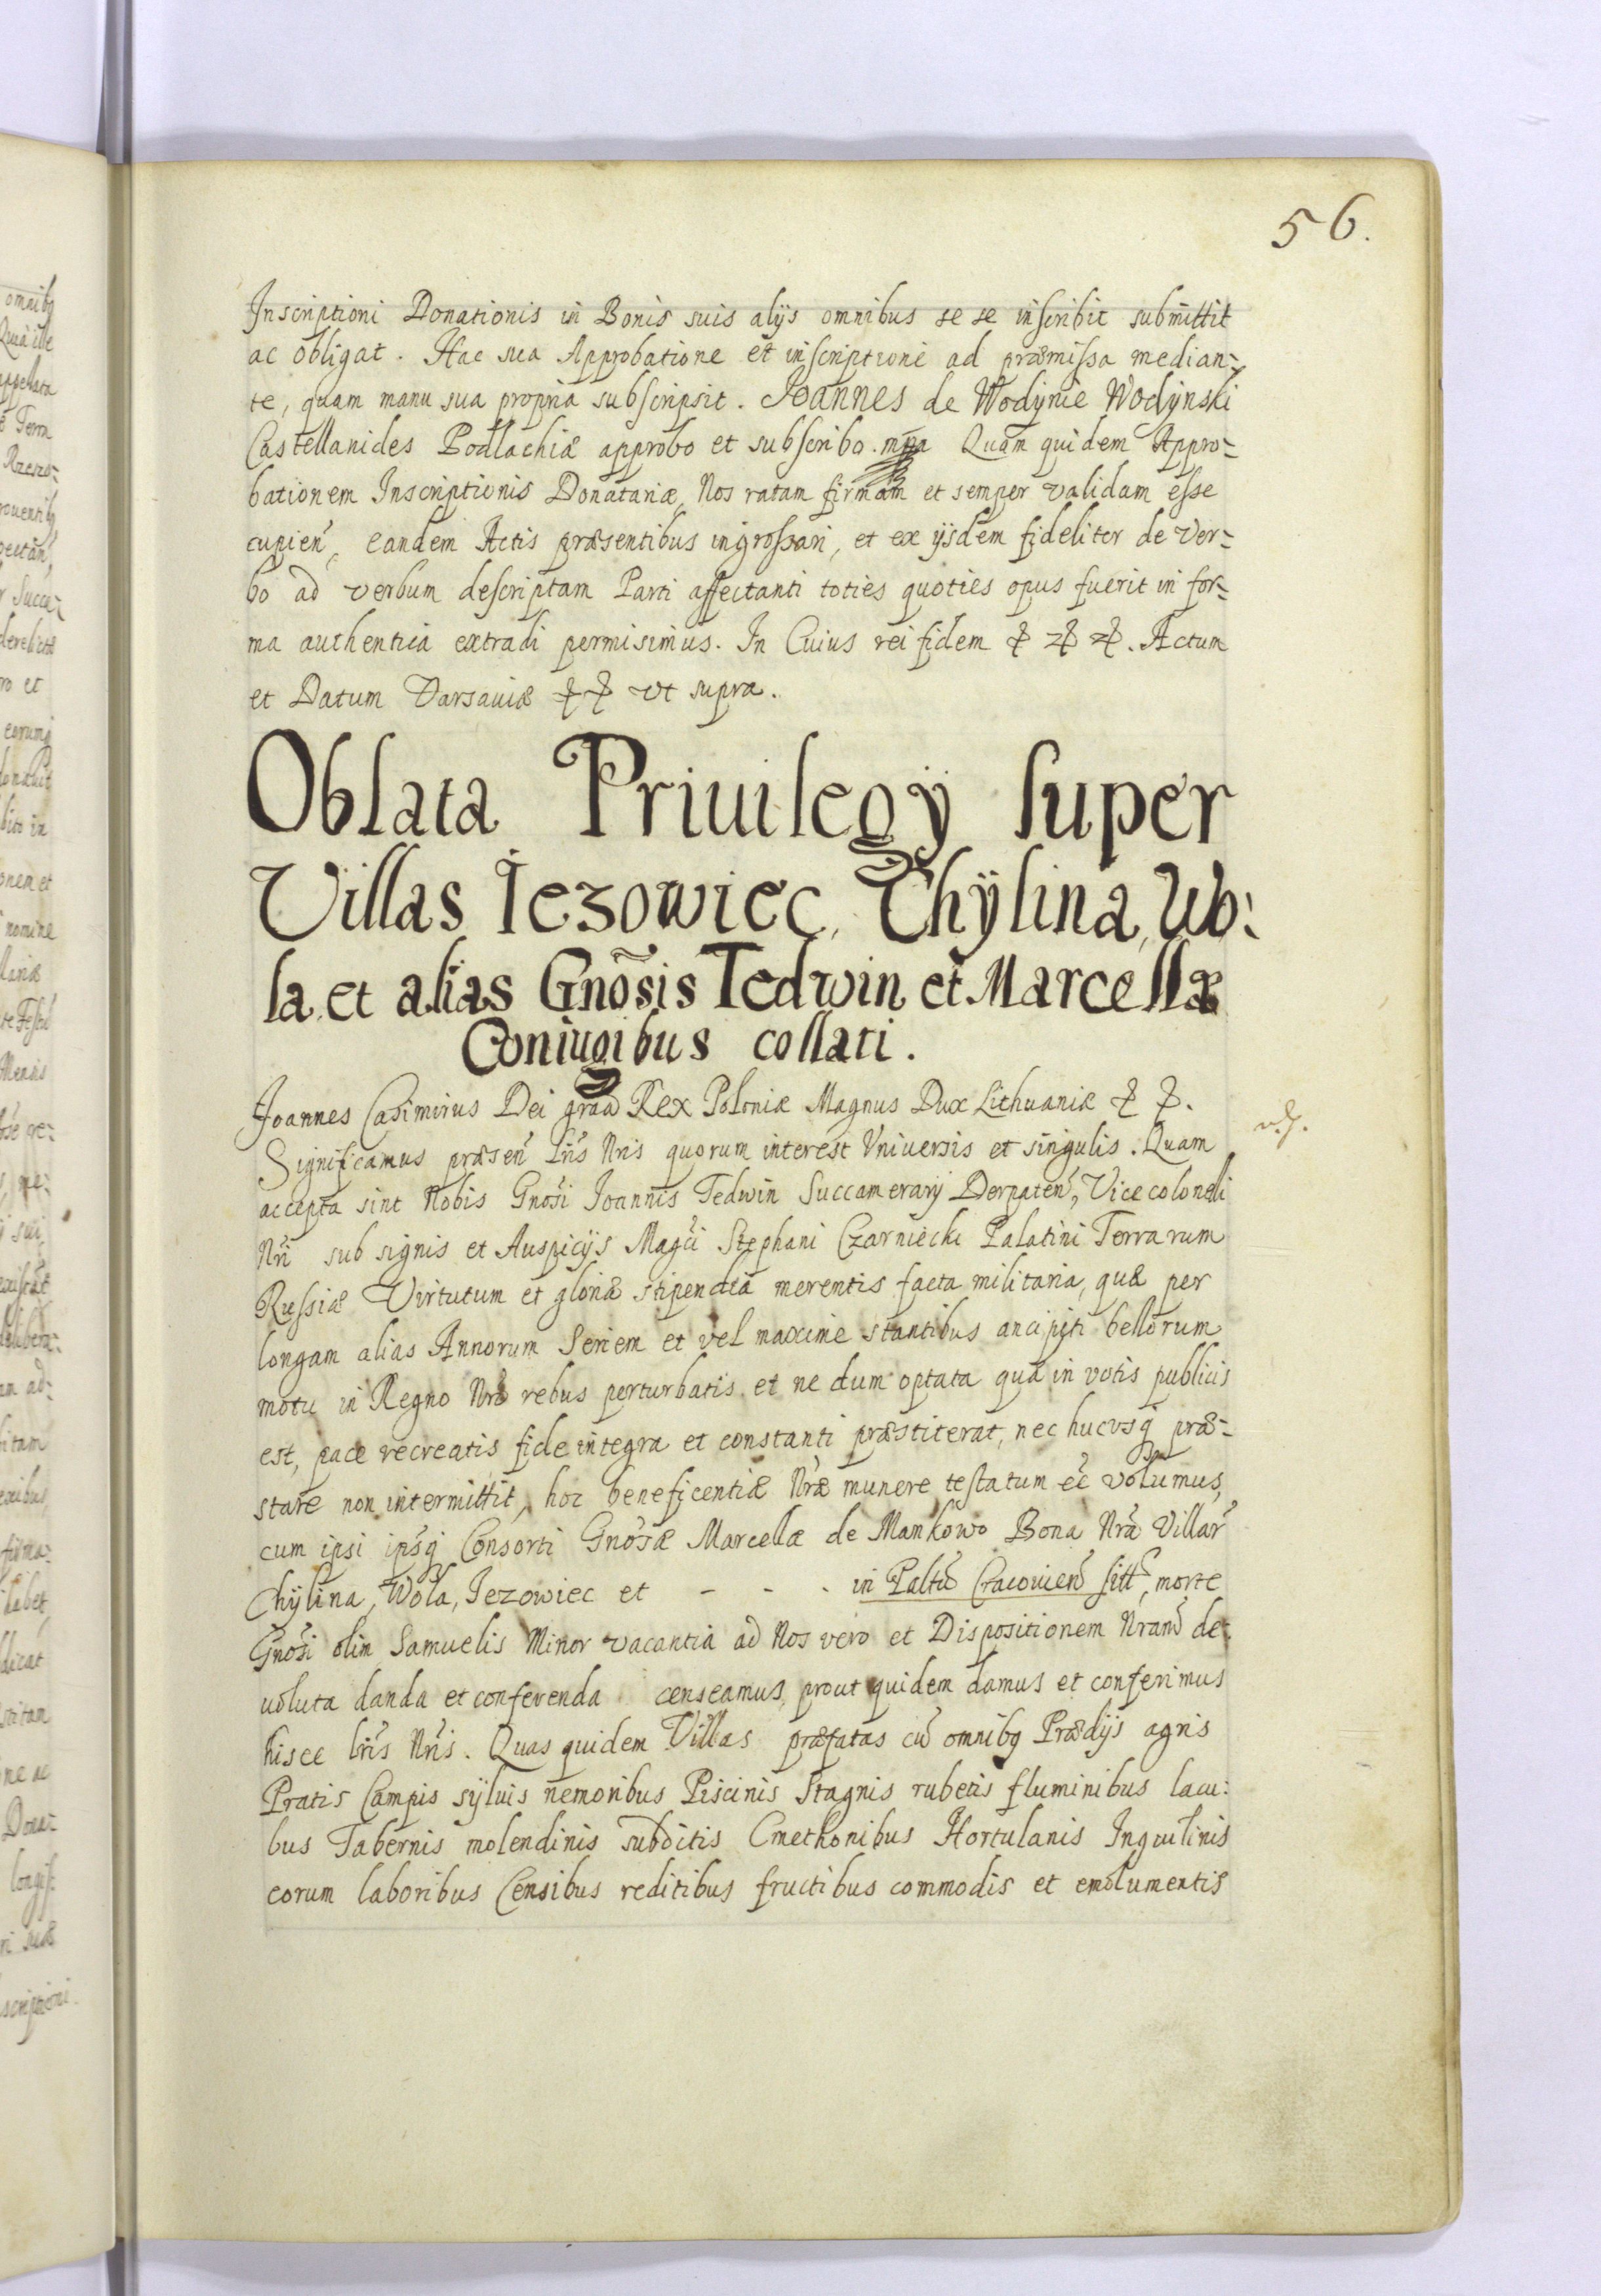 56.
Inscriptioni Donationis in Bonis suis alijs omnibus se se inscribit submittit
ac obligat. Hac sua Approbatione et inscriptione ad præmissa median=
te, quam manu sua propria subscripsit. Joannes de Wodynie Wodynski
Castellanides Podlachiæ approbo et subscribo. mpa Quam quidem Appro=
bationem Inscriptionis Donatariæ, Nos ratam firmam et semper validam esse
cupień, eandem Actis præsentibus ingrossari, et ex ijsdem fideliter de ver=
bo ad verbum descriptam Parti affectanti toties quoties opus fuerit in for=
ma authentica extradi permisimus. In Cuius rei fidem & & &. Actum
et Datum Varsaviæ & & vt supra.
Oblata Priuilegÿ super
Villas Iezowiec, Chÿlina, Wo:
la et alias Gnõsis Tedwin et Marcellæ
Coniugibus collati.
Joannes Casimirus Dei graã Rex Poloniæ Magnus Dux Lithuaniæ & &.
Significamus præseñ Lrĩs Nrĩs quorum interest Vniuersis et singulis. Quam
accepta sint Nobis Gnõsi Joannis Tedwin Succamerarij Derpateñ, Vice coloneli
Nrĩ sub signis et Auspicijs Magci Stephani Czarniecki Palatini Terrarum
Russiæ Virtutum et gloriæ stipendia merentis facta militaria, quæ per
longam alias Annorum Seriem et vel maxime stantibus ancipiti bellorum
motu in Regno Nrõ rebus perturbatis et ne dum optata quæ in votis publicis
est, pace recreatis fide integra et constanti præstiterat, nec hucvsq præ=
stare non intermittit, hoc beneficentiæ Nræ munere testatum eẽ volumus,
cum ipsi ipsq Consorti Gnõsæ Marcellæ de Mankowo Bona Nrã Villar
Chÿlina, Wola, Jezowiec et - - - in Paltũ Cracouień sitt, morte
Gnõsi olim Samuelis Minor vacantia ad Nos vero et Dispositionem Nram de:
uoluta danda et conferenda censeamus, prout quidem damus et conferimus
hisce Lrĩs Nrĩs. Quas quidem Villas præfatas cũ omnibq Prædijs agris
Pratis Campis syluis nemoribus Piscinis Stagnis rubetis fluminibus lacu:
bus Tabernis molendinis subditis Cmethonibus Hortulanis Inquilinis
eorum laboribus Censibus reditibus fructibus commodis et emolumentis